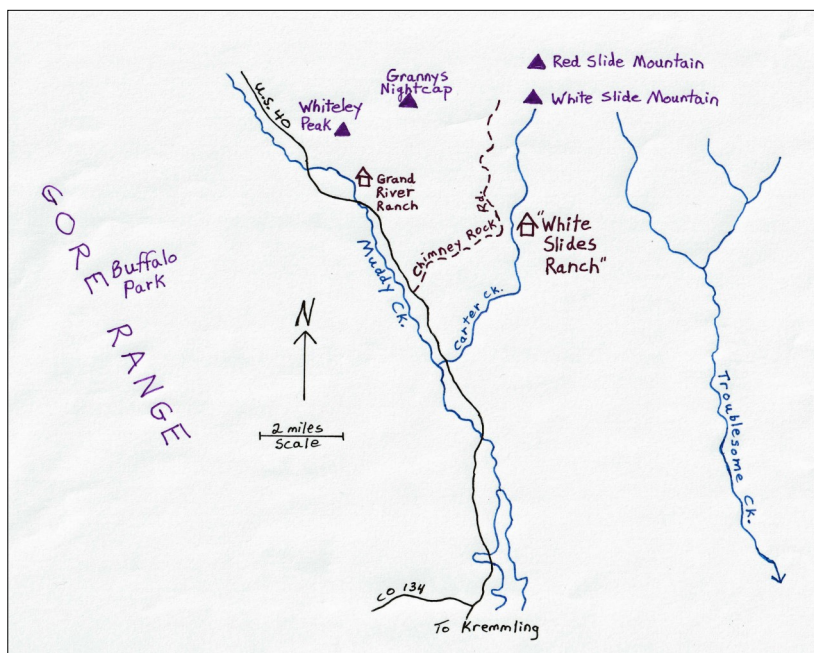 Red Slide Mountain
Grannys
Nightcap
White Slide Mountain
U.S. 40
Whiteley
Peak
Grand
River
Ranch
Chimney Rock Rd.
"White
Slides
Ranch"
GORE RANGE
Buffalo
Park
Muddy Ck.
N
Carter Ck.
2 miles
Scale
Troublesome Ck.
CO 134
To Kremmling